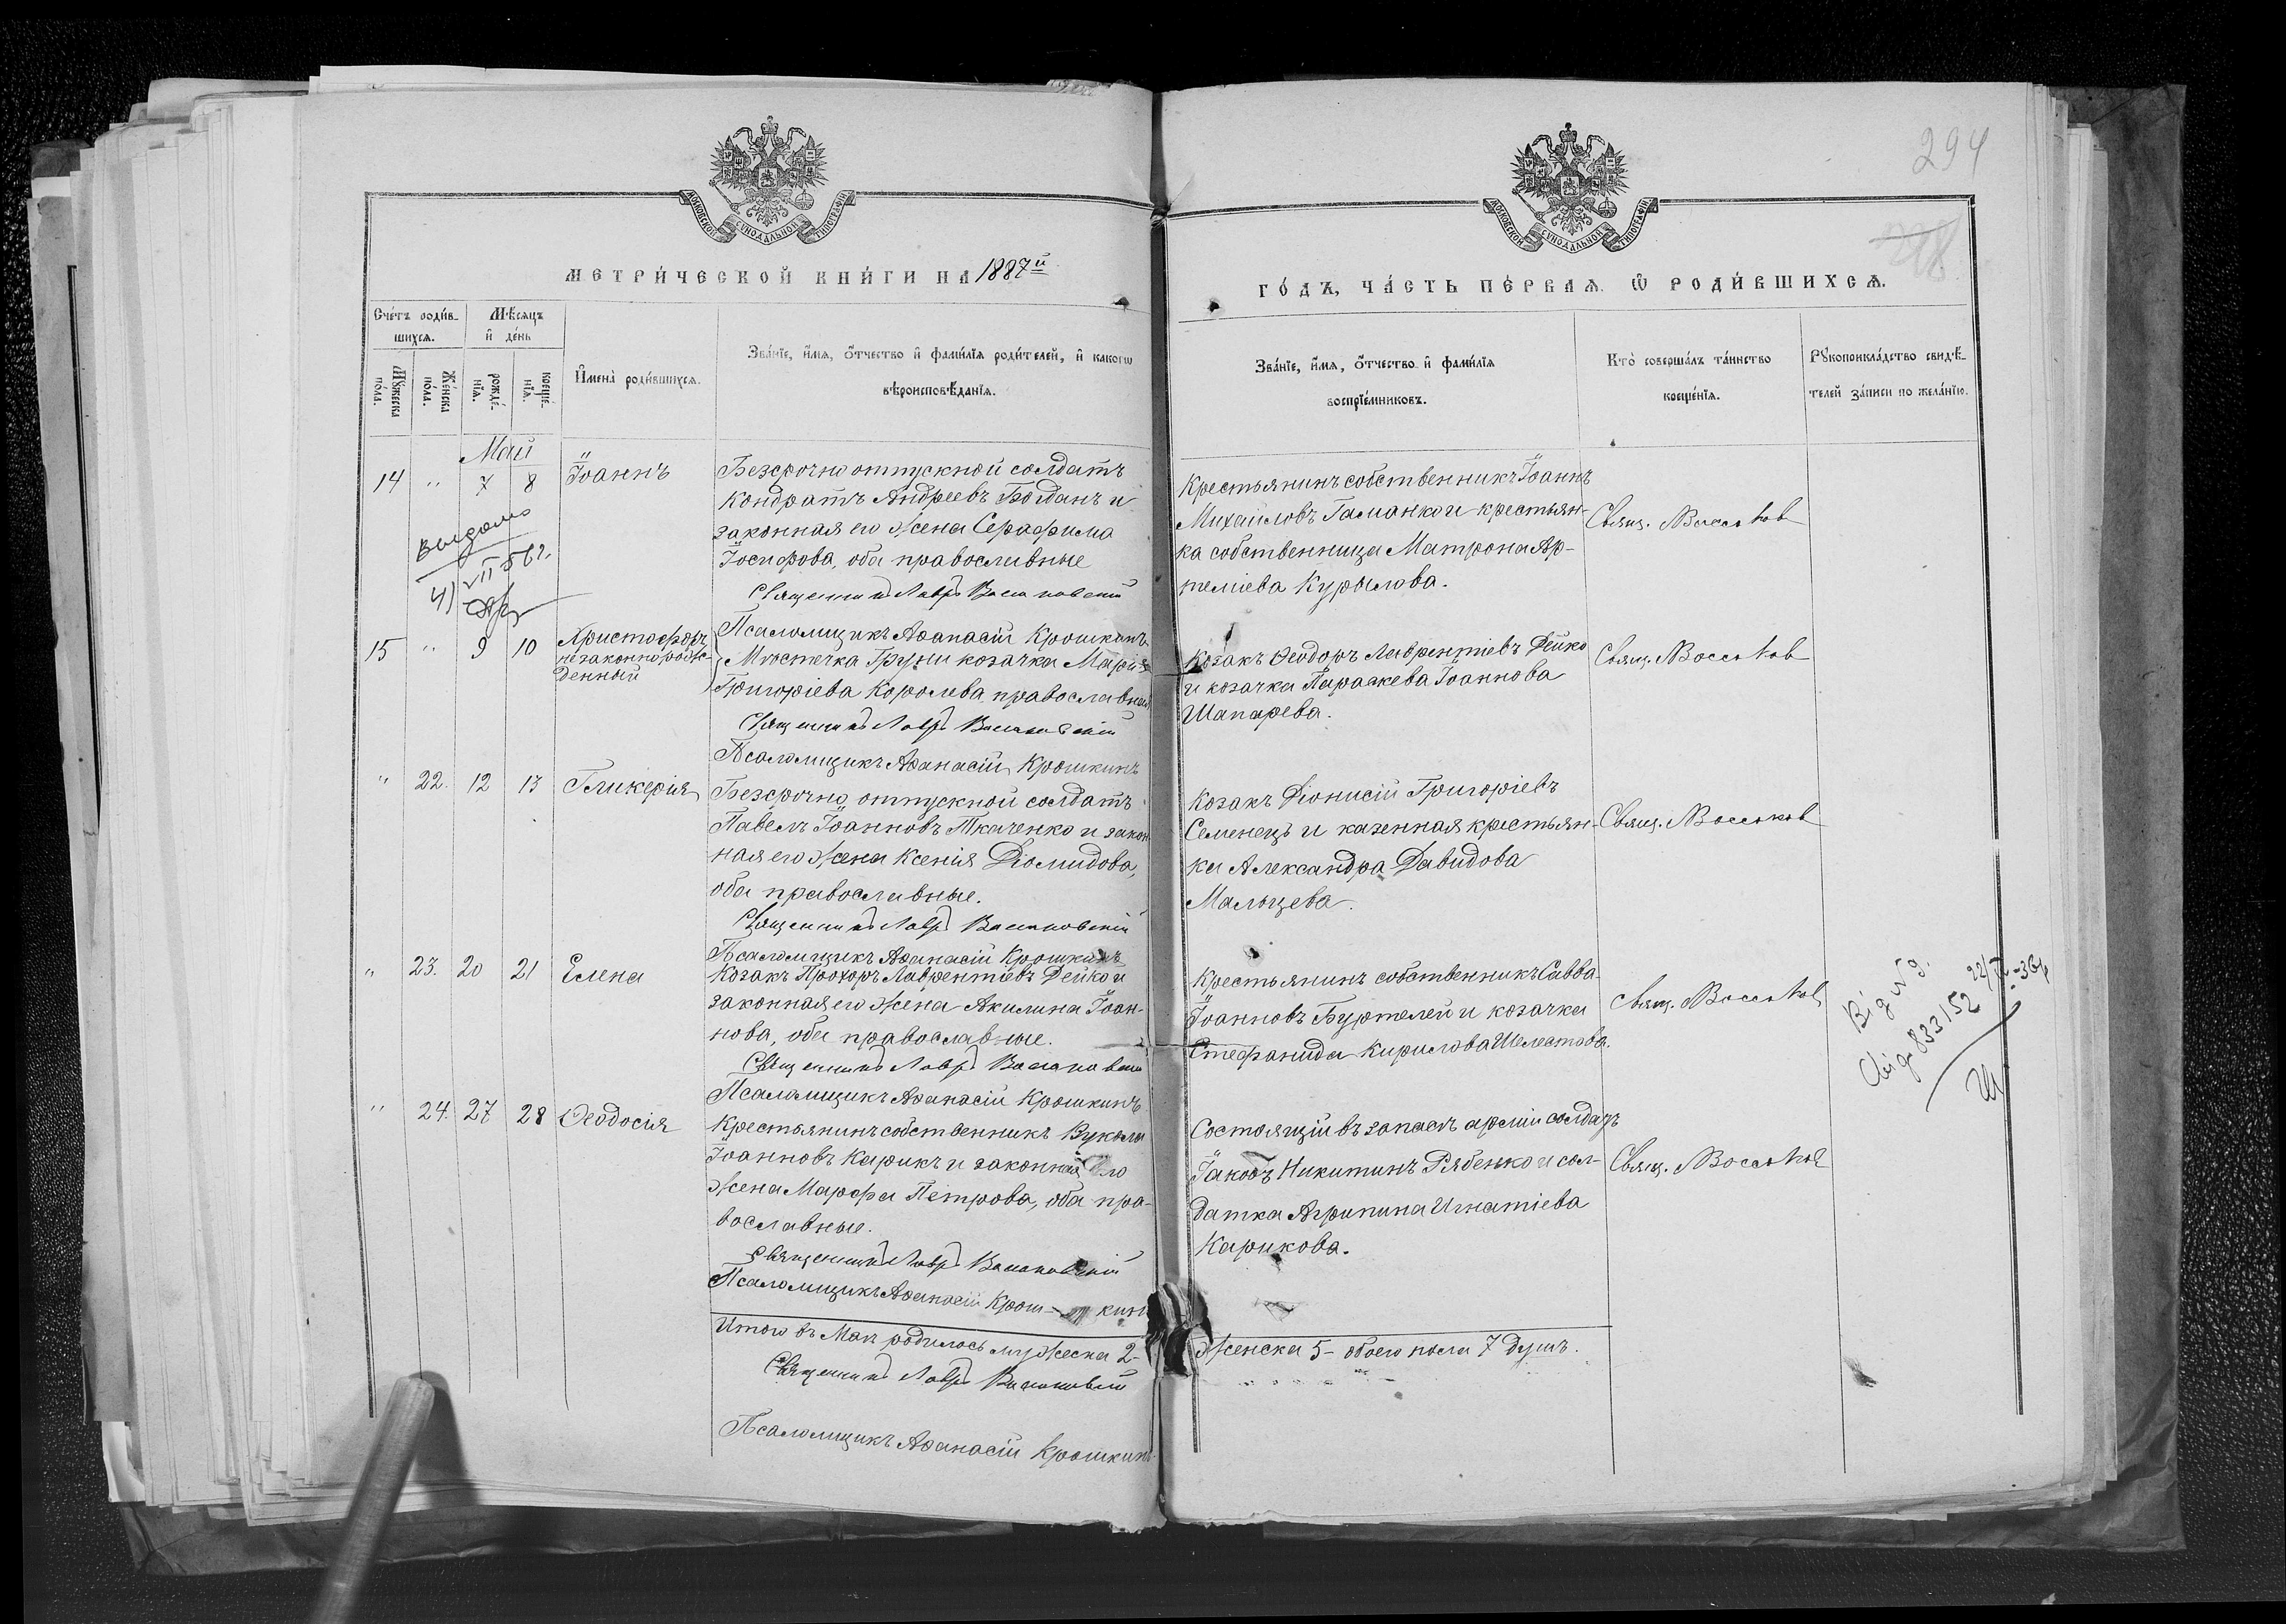 294
МОСКОВСКОЙ СУНОДАЛЬНОЙ ТИПОГРАФІИ
МОСКОВСКОЙ СУНОДАЛЬНОЙ ТИПОГРАФІИ
МЕТРИ́ЧЕСКОЙ КНИ́ГИ НА 1887й
ГО́ДЪ, ЧА́СТЬ ПЕ́РВАЯ Ѡ҆ РОДИ́ВШИХСѦ.
Сче́тъ роди́в-
шихсѧ.
Мѣ́сѧцъ
и҆ де́нь
Мꙋ́жеска по́ла.
Же́нска по́ла.
рожде́-нїѧ.
креще́-нїѧ.
И҆мена̀ роди́вшихсѧ.
Зва́нїе, и҆́мѧ, ѻ҆́тчество и҆ фами́лїѧ роди́телей, и҆ какогѡ
вѣроисповѣ́данїѧ.
Зва́нїе, и҆́мѧ, ѻ҆́тчество и҆ фами́лїѧ
воспрїе́мниковъ.
Кто̀ соверша́лъ та́инство
креще́нїѧ.
Рꙋкоприкла́дство свидѣ́-
телей за́писи по жела́нїю.
Май
14 " 7 8 Іоаннъ
Безсрочно отпускной солдатъ
Кондратъ Андреевъ Богданъ и
законная его жена Серафима
Іосифова, оба православные
Священникъ Лавръ
Крестьянинъ собственникъ Іоаннъ
Михайловъ Гаманко и крестьян-
ка собственница Матрона Ар-
теміева Курылова.
Свящ.
Выдано
VII 56 г.
15 " 9 10 Христофоръ
незаконнорож-
денный
Псаломщикъ Аѳанасій Крошкинъ
Мѣстечка Груни козачка Марія
Григоріева Королева, православная
Священникъ Лавръ
Козакъ Ѳеодоръ Лаврентіевъ Дейко
и козачка Параскева Іоаннова
Шапарева.
Свящ.
Псаломщикъ Аѳанасій Крошкинъ
" 22. 12 13 Гликерія
Безсрочно отпускной солдатъ
Павелъ Іоанновъ Ткаченко и закон-
ная его жена Ксенія Діомидова,
оба православные.
Священникъ Лавръ
Козакъ Діонисій Григоріевъ
Семенецъ и казенная крестьян-
ка Александра Давидова
Мальцева.
Свящ.
Псаломщикъ Аѳанасій Крошкинъ
" 23. 20 21 Елена
Козакъ Прохоръ Лаврентіевъ Дейко и
законная его жена Акилина Іоан-
нова, оба православные.
Священникъ Лавръ
Крестьянинъ собственникъ Савва
Іоанновъ Буртелей и козачка
Стефанида Кирилова Шелестова.
Свящ.
833152
Псаломщикъ Аѳанасій Крошкинъ
" 24. 27 28 Ѳеодосія
Крестьянинъ собственникъ Вуколъ
Іоанновъ Карикъ и законная его
жена Марфа Петрова, оба пра-
вославные.
Священникъ Лавръ
Псаломщикъ Аѳанасій Крош- кинъ
Состоящій въ запасѣ арміи солдатъ
Іаковъ Никитинъ Рябенко и сол-
датка Агрипина Игнатіева
Карикова.
Свящ.
Итого въ Маѣ родилось мужеска 2-
женска 5- обоего пола 7 душъ.
Священникъ Лавръ
Псаломщикъ Аѳанасій Крошкинъ